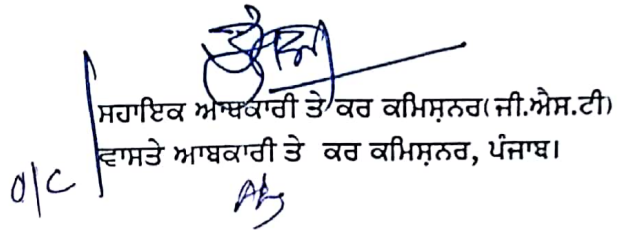 ਸਹਾਇਕ ਆਬਕਾਰੀ ਤੇ ਕਰ ਕਮਿਸ਼ਨਰ(ਜੀ.ਐਸ.ਟੀ)
ਵਾਸਤੇ ਆਬਕਾਰੀ ਤੇ ਕਰ ਕਮਿਸ਼ਨਰ, ਪੰਜਾਬ।
O/C